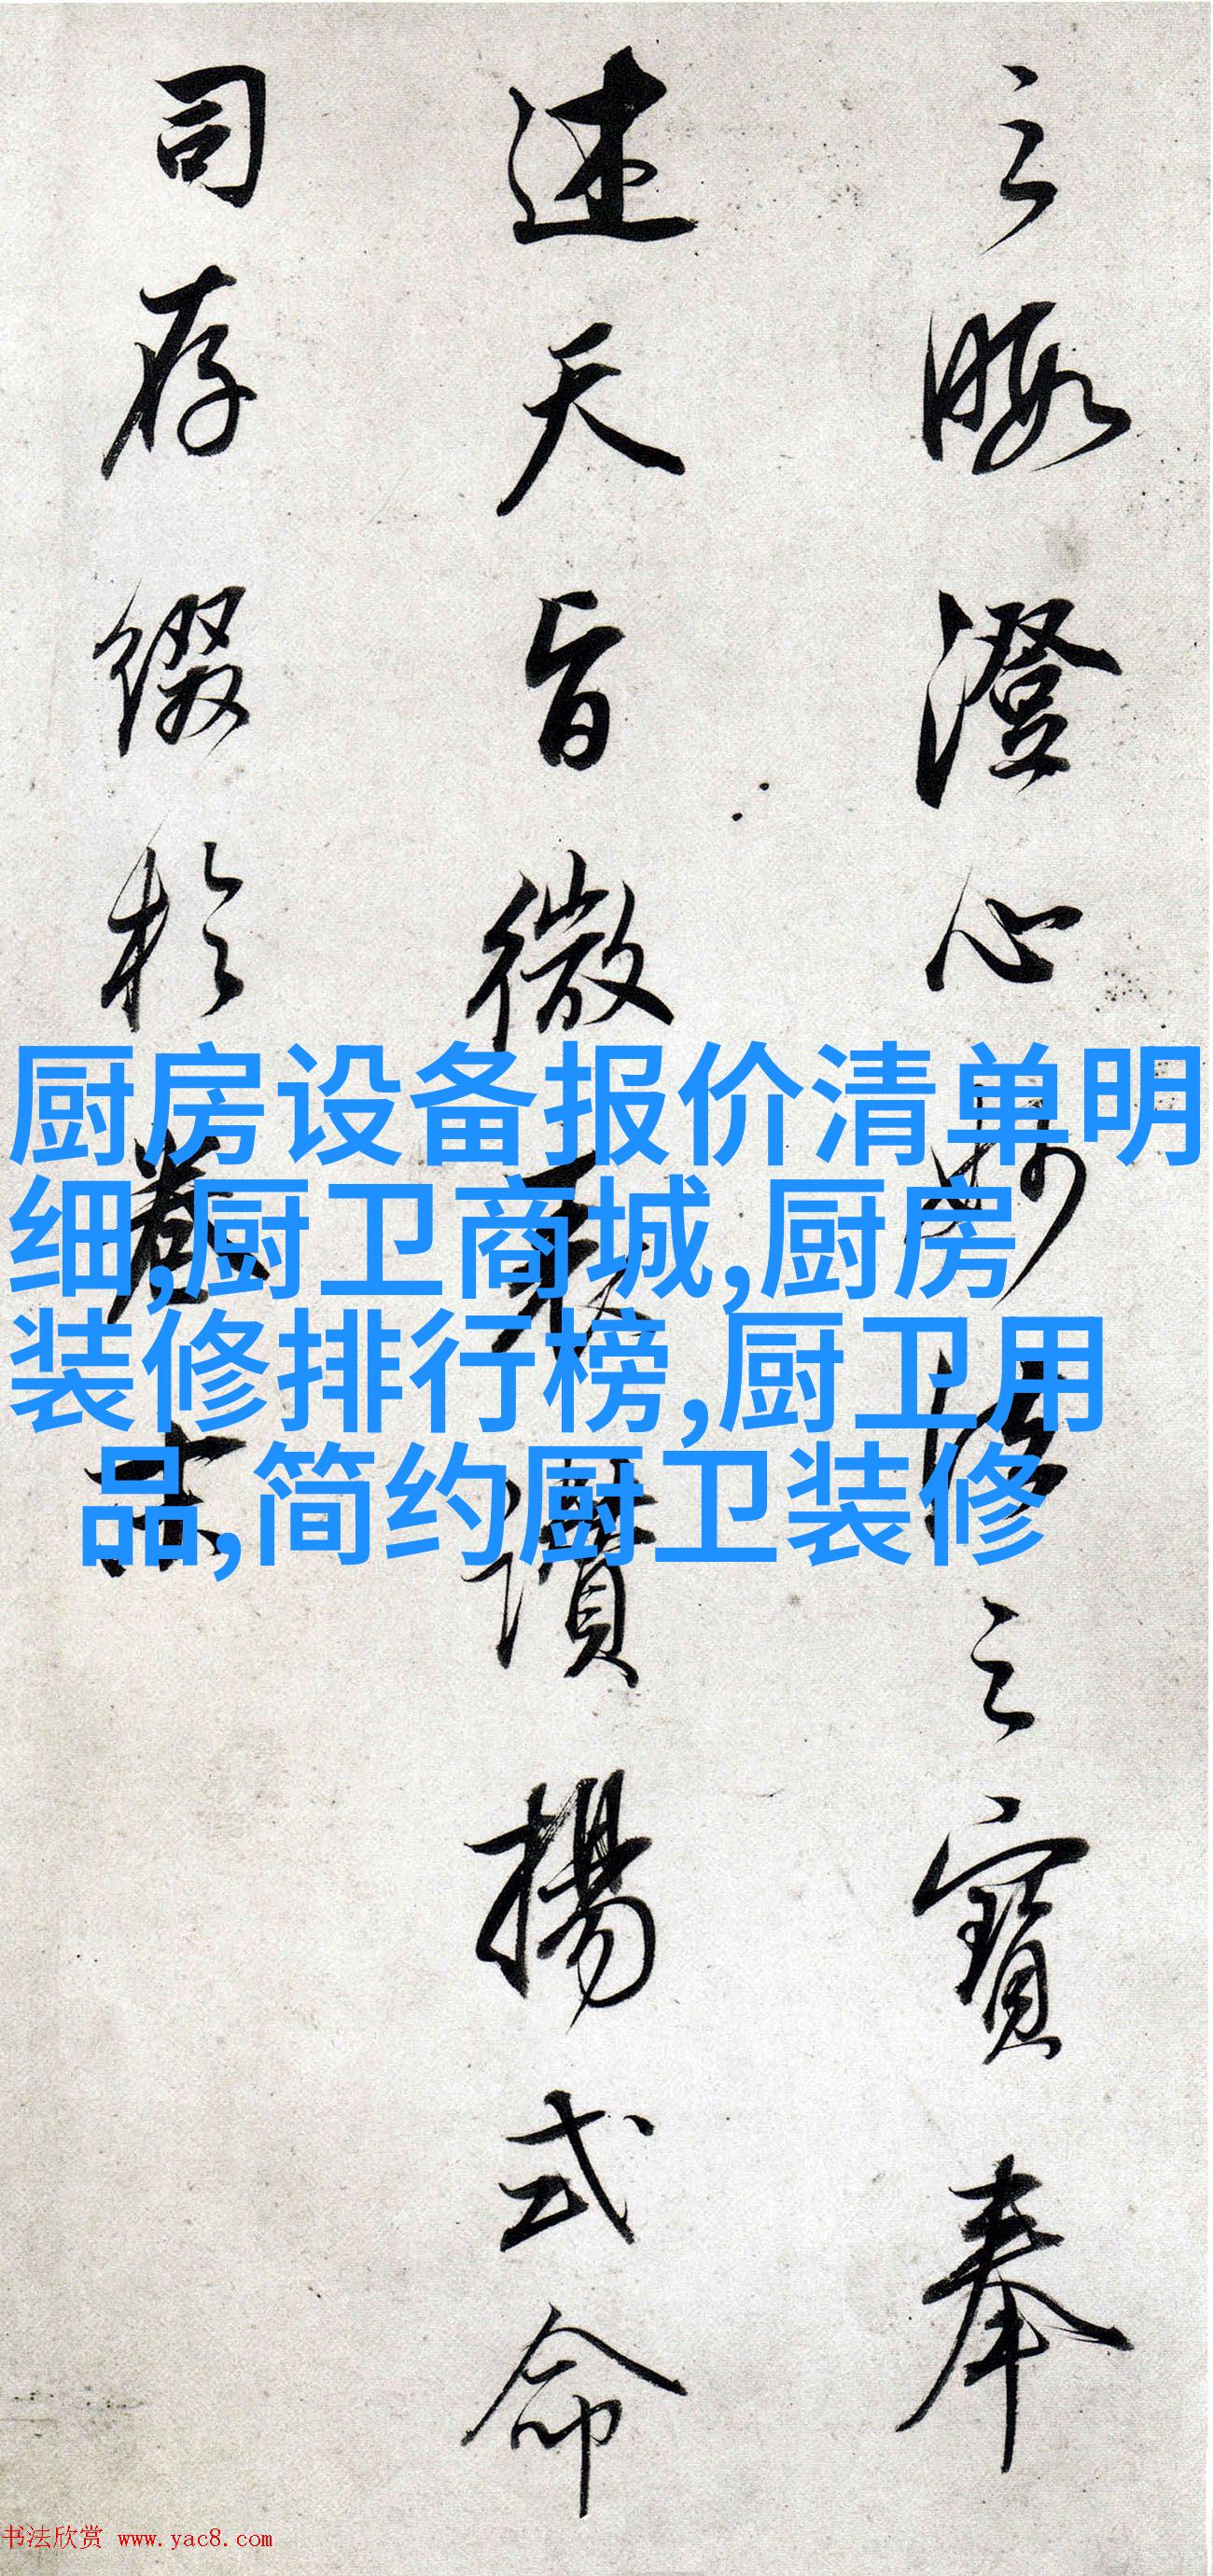 之暇澄心妙悟之寶奉
述天旨微表讚揚式命
司存缀於卷末
厨房设备报价清单明
细,厨卫商城,厨房
装修排行榜,厨卫用
品,简约厨卫装修
书法欣赏 www.yac8.com